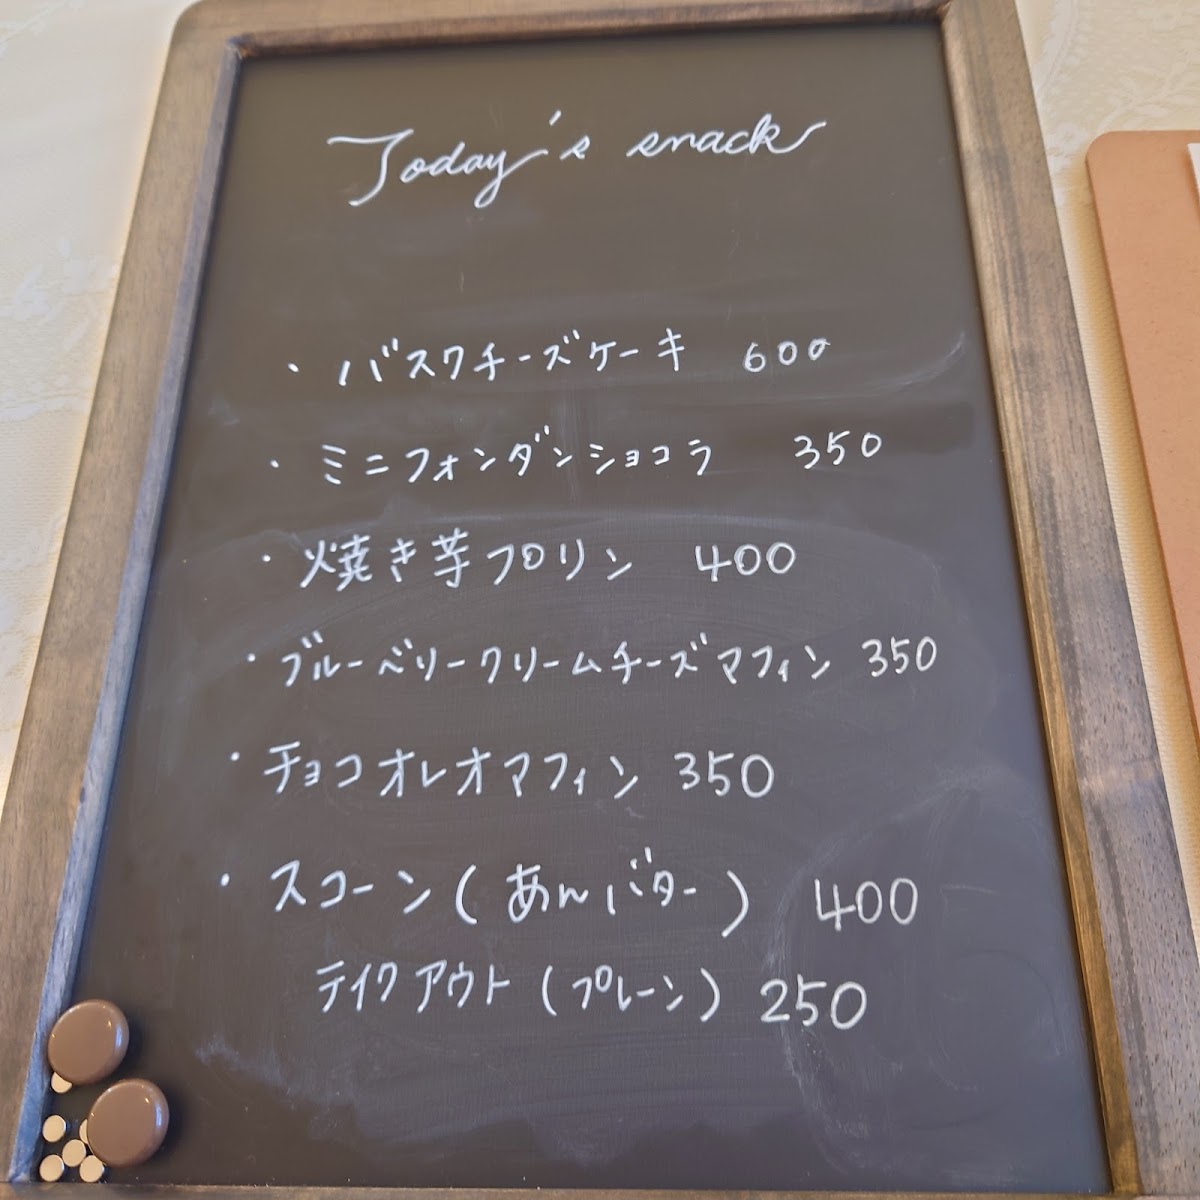 Today's snack
・バスクチーズケーキ 600
・ミニフォンダンショコラ 350
・焼き芋プリン 400
・ブルーベリークリームチーズマフィン 350
・チョコオレオマフィン 350
・スコーン(あんバター) 400
テイクアウト(プレーン) 250